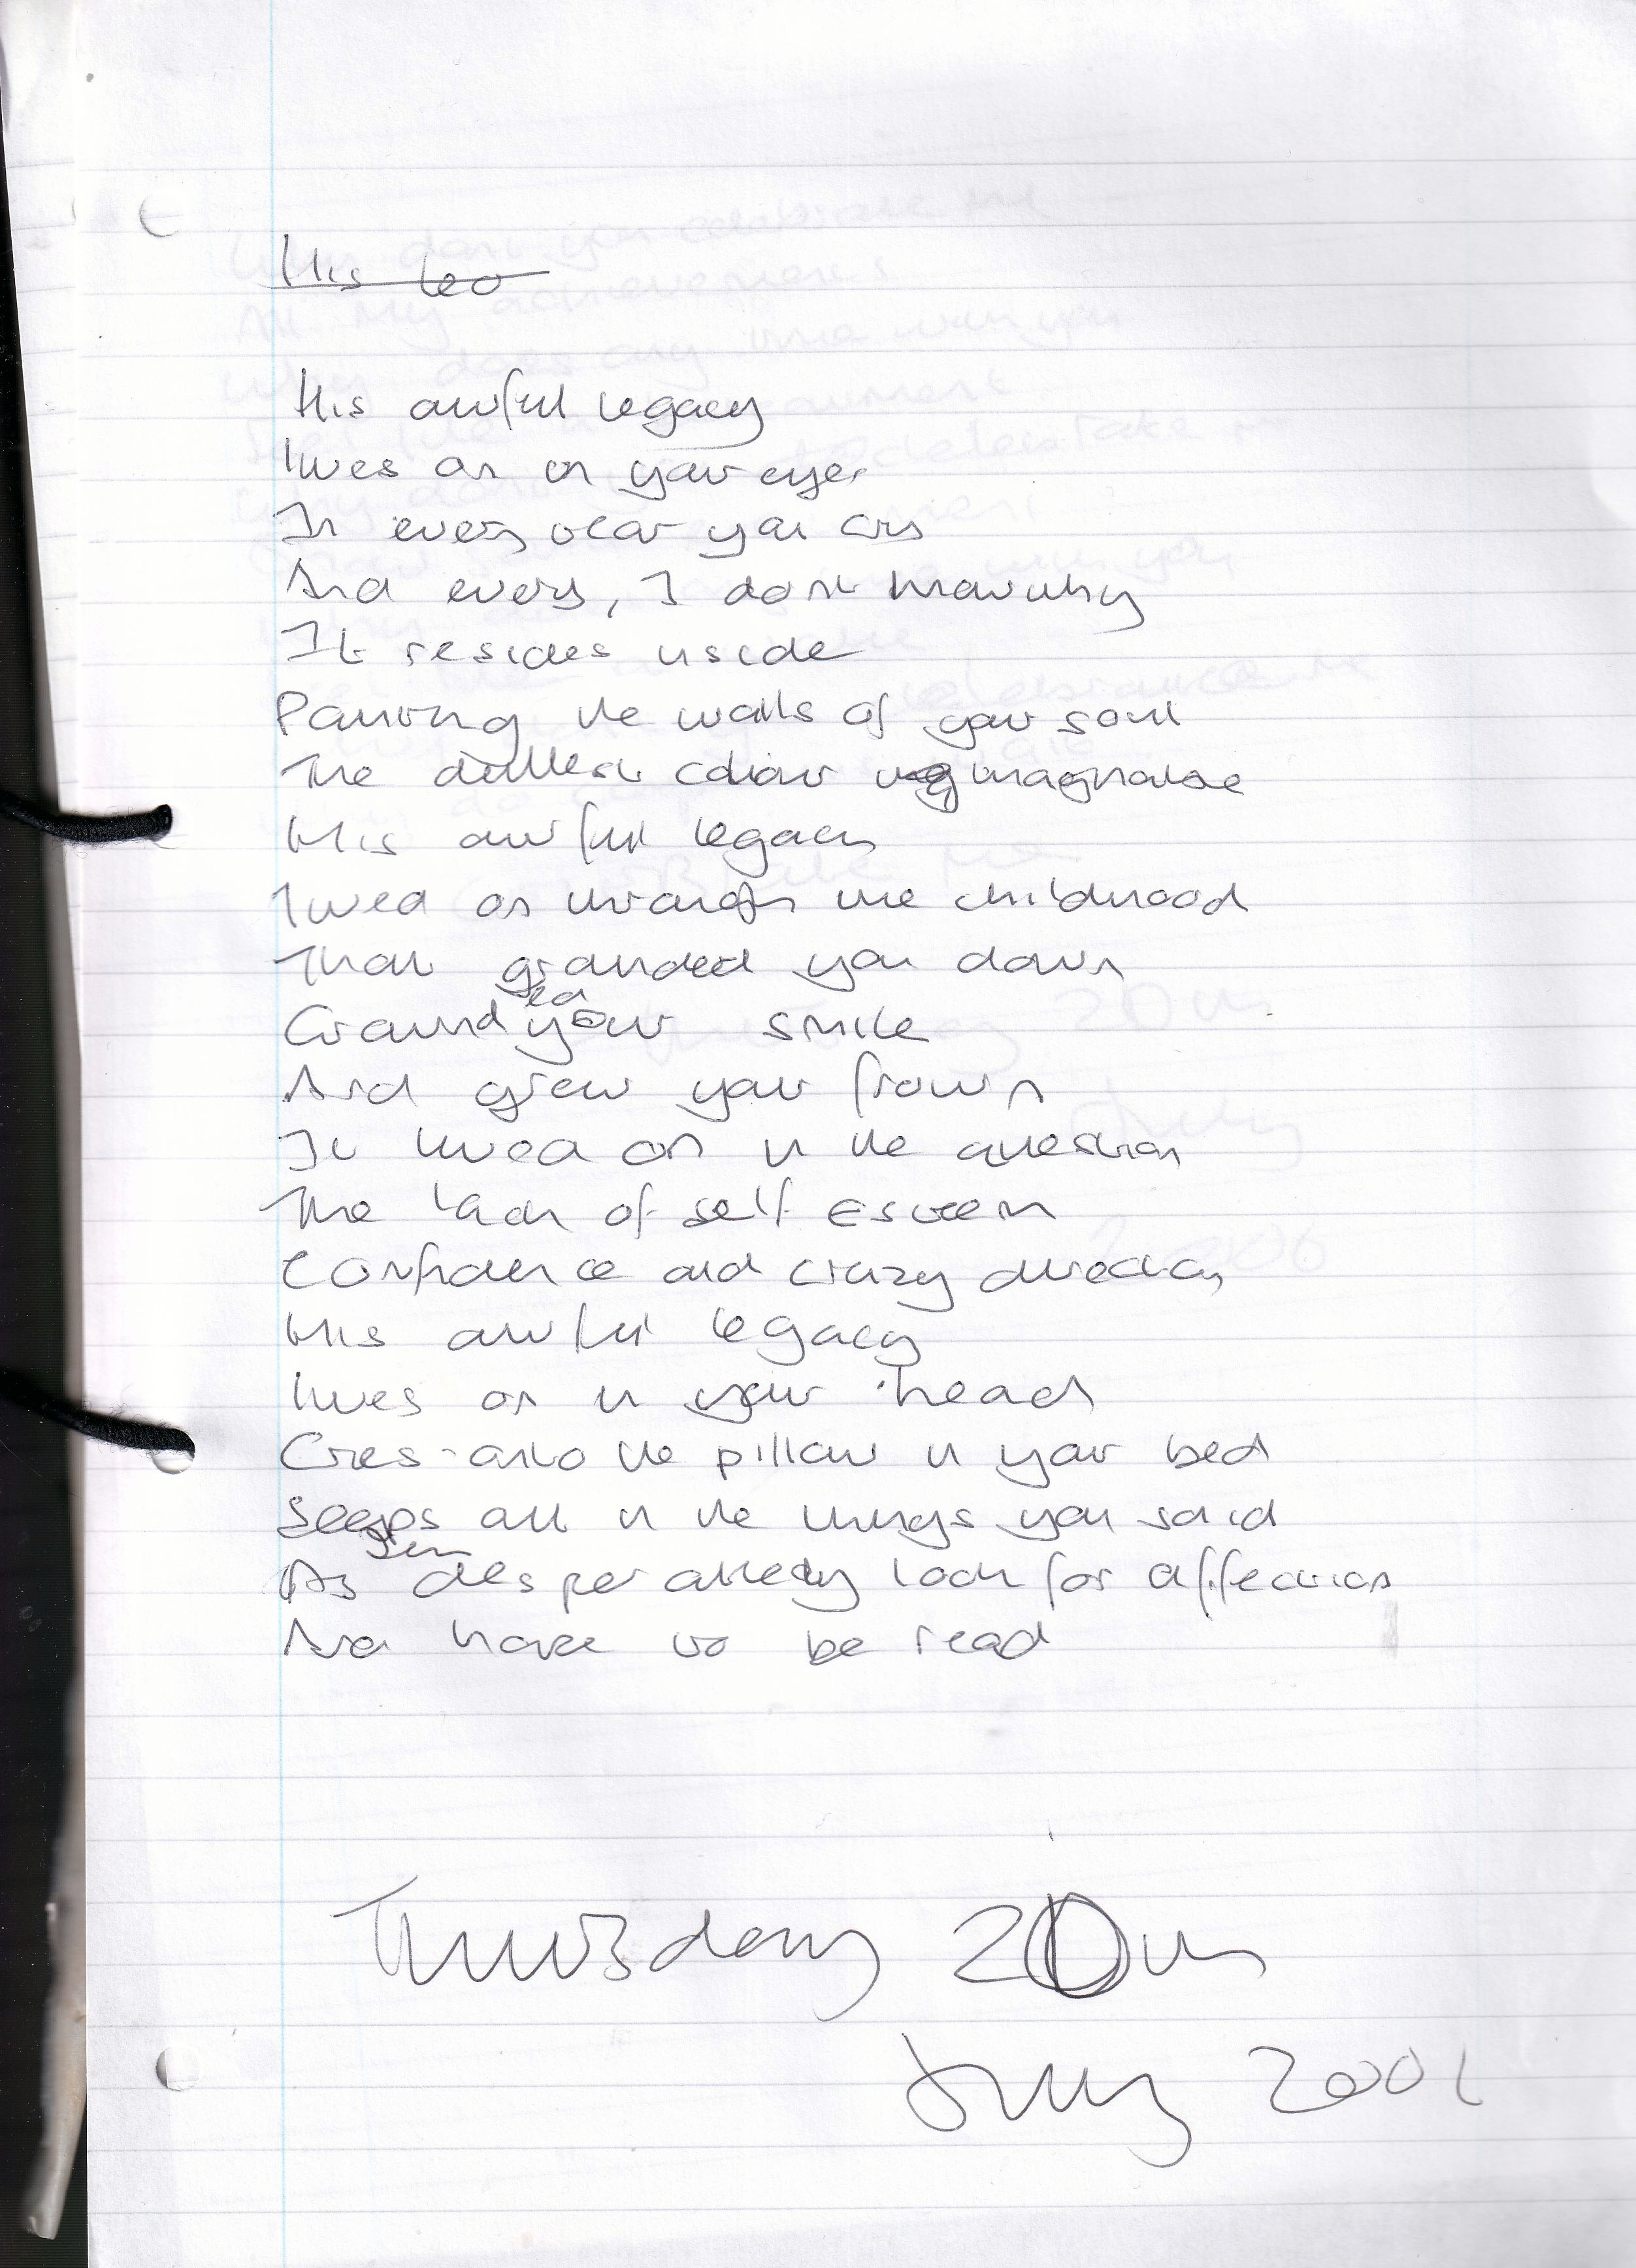 His leo
His awful legacy
lives on in your eyes
In every tear you cry
And every, I don't know why
It resides inside
Painting the walls of your soul
The dullest colour imaginable
His awful legacy
lived on through the childhood
That grounded you down
Grounded your smile
And grew your frown
It lived on in the question
The lack of self esteem
Confidence and crazy direction
His awful legacy
lives on in your head
Cries onto the pillow in your bed
Seeps out in the things you said
As desperately look for affection
And hope to be read
Thursday 20th
July 2006